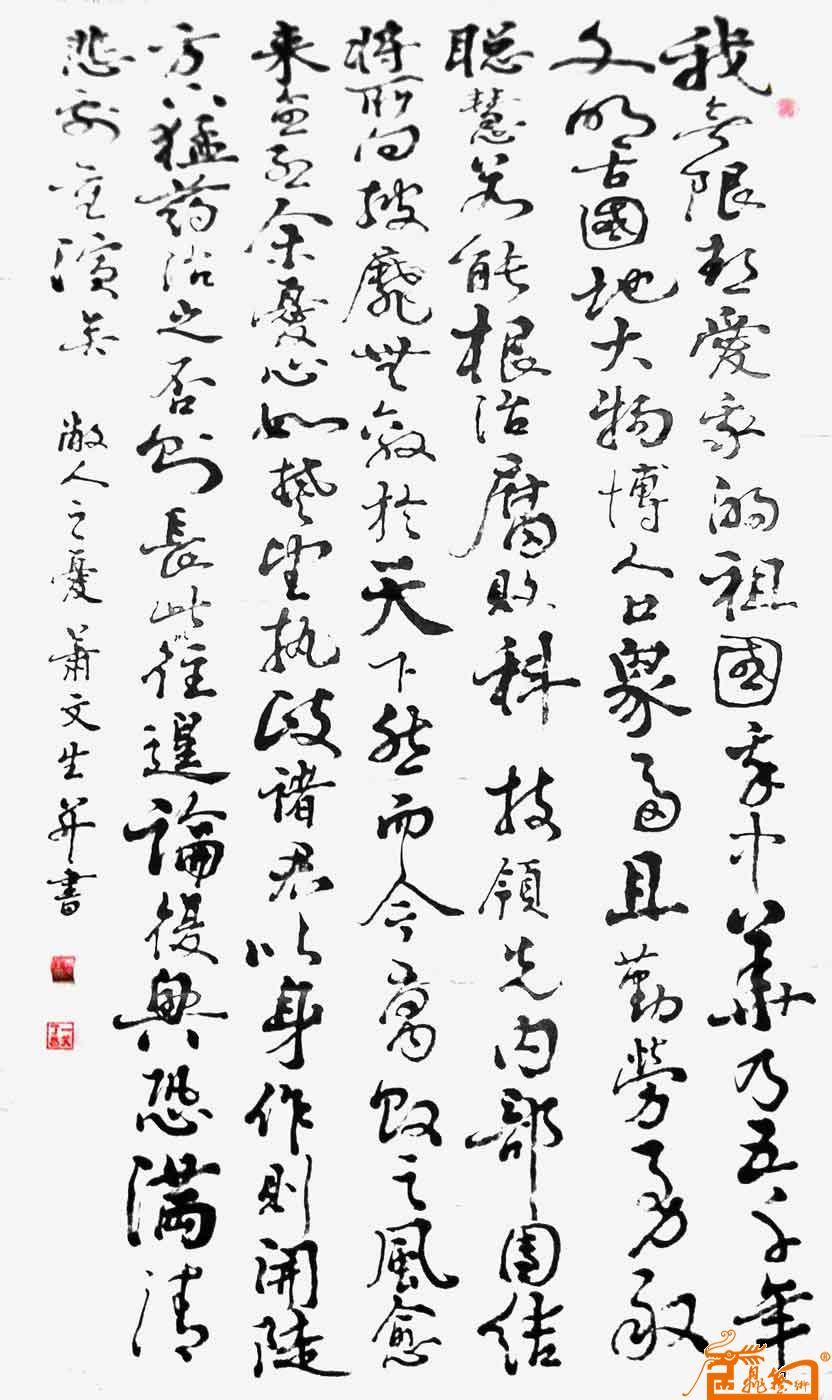 我無限熱愛我的祖國我中華乃五千年
文明古國地大物博人口衆多且勤勞勇敢
聰慧若能根治腐敗科技領先内部團結
將所向披靡無敵於天下然而今萬歿之風愈
来愈烈余憂心如焚望執政諸君以身作則開陡
方以猛药治之否則長此往遑論復興恐满清
悲劇重演矣 敝人之憂 蕭文生并書